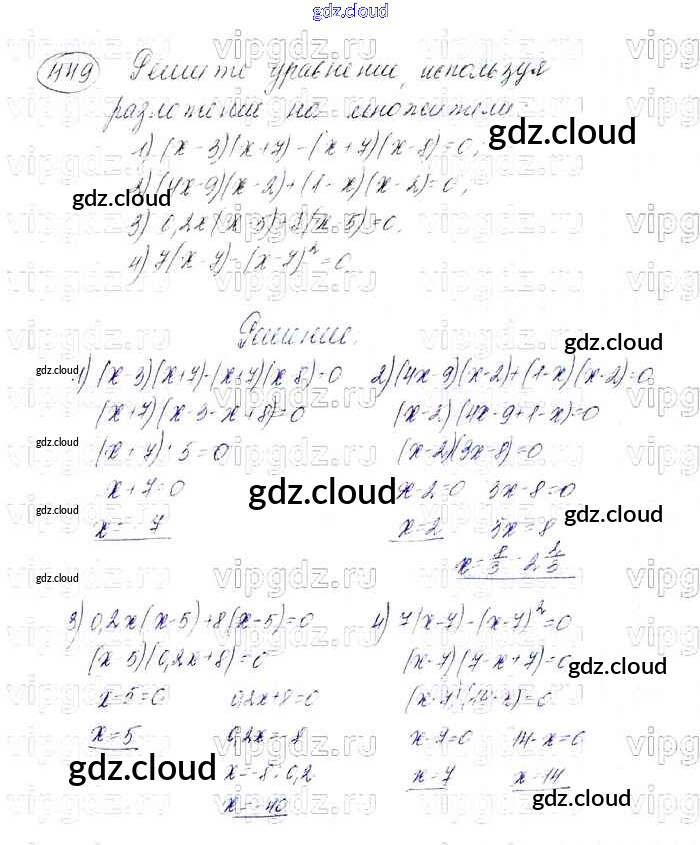 gdz.cloud
449 Решите уравнение, используя
разложение на множители:
gdz.cloud
1) (x-3)(x+7)-(x+7)(x-8)=0;
gdz.cloud
2) (4x-9)(x-2)+(1-x)(x-2)=0;
3) 0,2x(x-5)+8(x-5)=0.
4) 7(x-7)-(x-7)²=0
Решение.
gdz.cloud
gdz.cloud
1) (x-3)(x+7)-(x+7)(x-8)=0
(x+7)(x-3-x+8)=0
gdz.cloud
(x+7)·5=0
x+7=0
gdz.cloud
x=-7
2) (4x-9)(x-2)+(1-x)(x-2)=0
(x-2)(4x-9+1-x)=0
(x-2)(3x-8)=0
x-2=0 3x-8=0
gdz.cloud
gdz.cloud
x=2 3x=8
x=8/3=2 2/3
gdz.cloud
3) 0,2x(x-5)+8(x-5)=0
(x-5)(0,2x+8)=0
x-5=0 0,2x+8=0
x=5 0,2x=-8
gdz.cloud
x=-8:0,2
x=-40
4) 7(x-7)-(x-7)²=0
(x-7)(7-x+7)=0
gdz.cloud
(x-7)(14-x)=0
x-7=0 14-x=0
x=7 x=14
gdz.cloud
vipgdz.ru